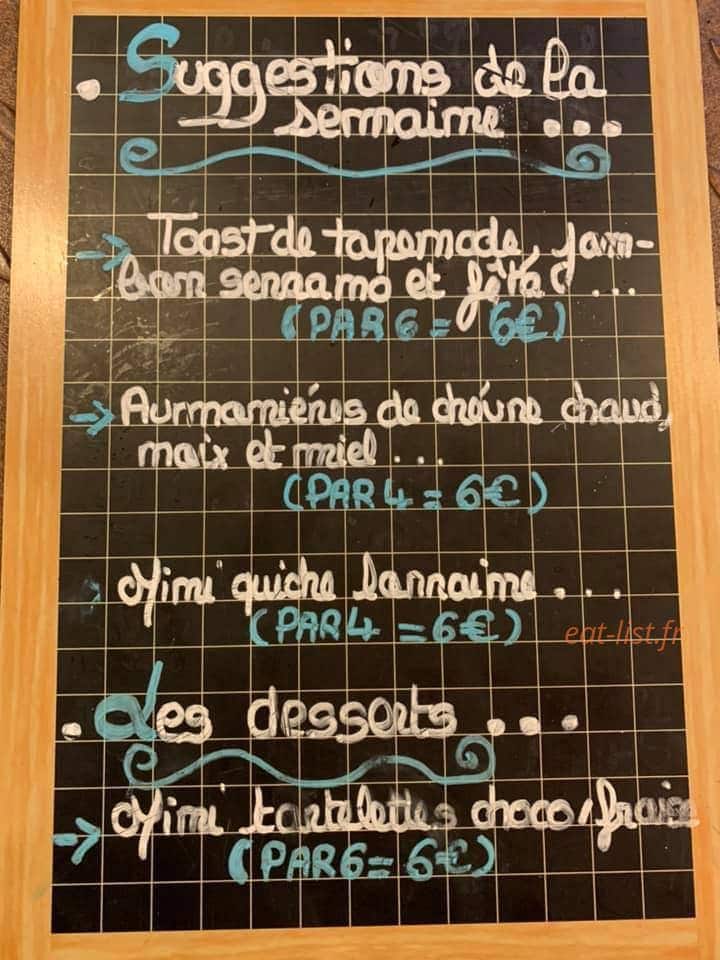 . Suggestions de la
semaine ...
→ Toast de tapenade, jam-
bon serrano et fêta ...
(PAR 6 = 6€)
→ Aumônières de chèvre chaud,
noix et miel ...
(PAR 4 = 6€)
→ Mini quiche lorraine ...
(PAR 4 = 6€)
eat-list.fr
. Les desserts ...
→ Mini tartelettes choco/fraise
(PAR 6 = 6€)